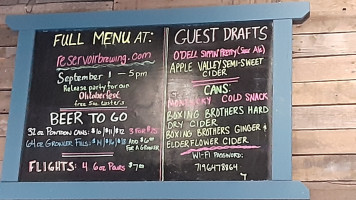 FULL MENU AT:
reservoirbrewing.com
September 1 - 5pm
Release party for our
Oktoberfest
BEER TO GO
32 oz Cans: $10 $11 $12 3 FOR $25
64 oz GROWLER FILLS: $14 $16 $18 ADD $6.00
FOR A GROWLER
FLIGHTS: 4 6oz Pours $7.00
GUEST DRAFTS
O'DELL SIPPIN PRETTY (Sour Ale)
APPLE VALLEY SEMI-SWEET
CIDER
CANS:
COLD SNACK
BOXING BROTHERS HARD
DRY CIDER
BOXING BROTHERS GINGER &
ELDERFLOWER CIDER
WI-FI PASSWORD:
7196478964